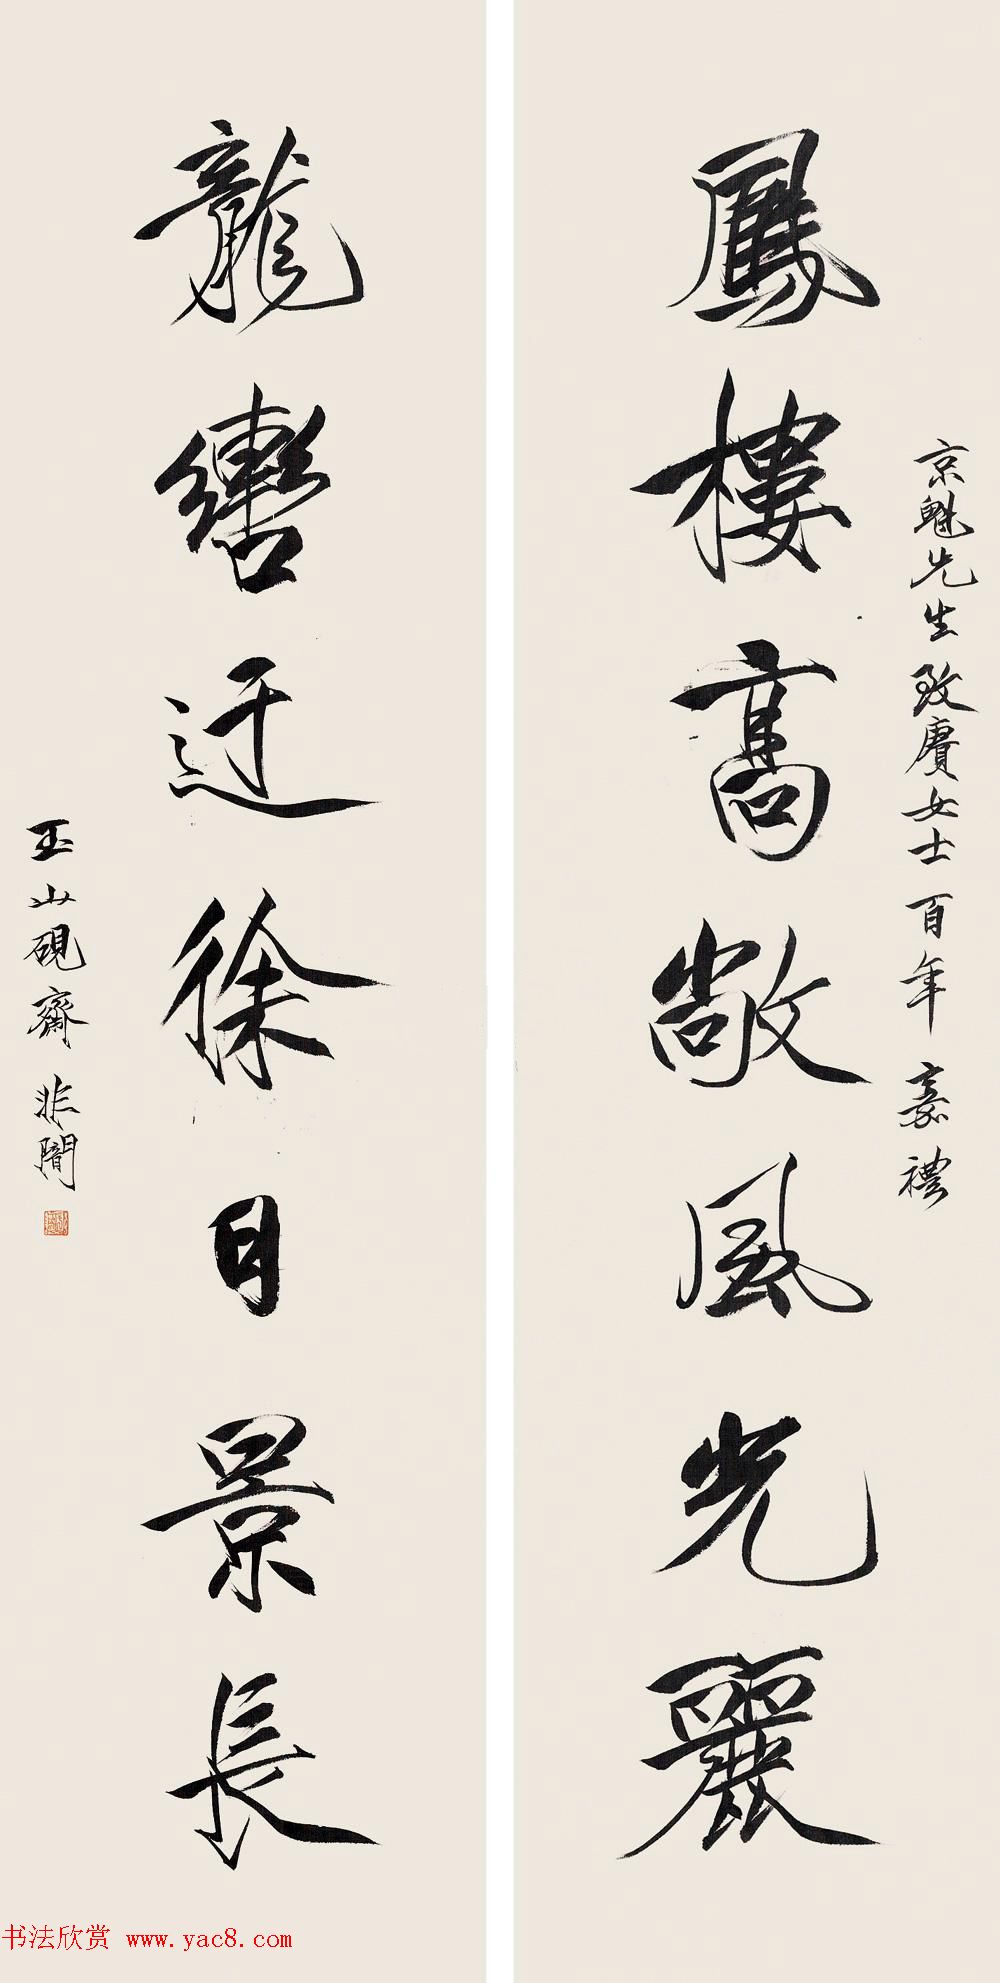 京魁先生致賡女士百年嘉禮
鳳樓髙敞風光麗
龍轡迂徐日景長
玉山硯齋非闇
书法欣赏 www.yac8.com